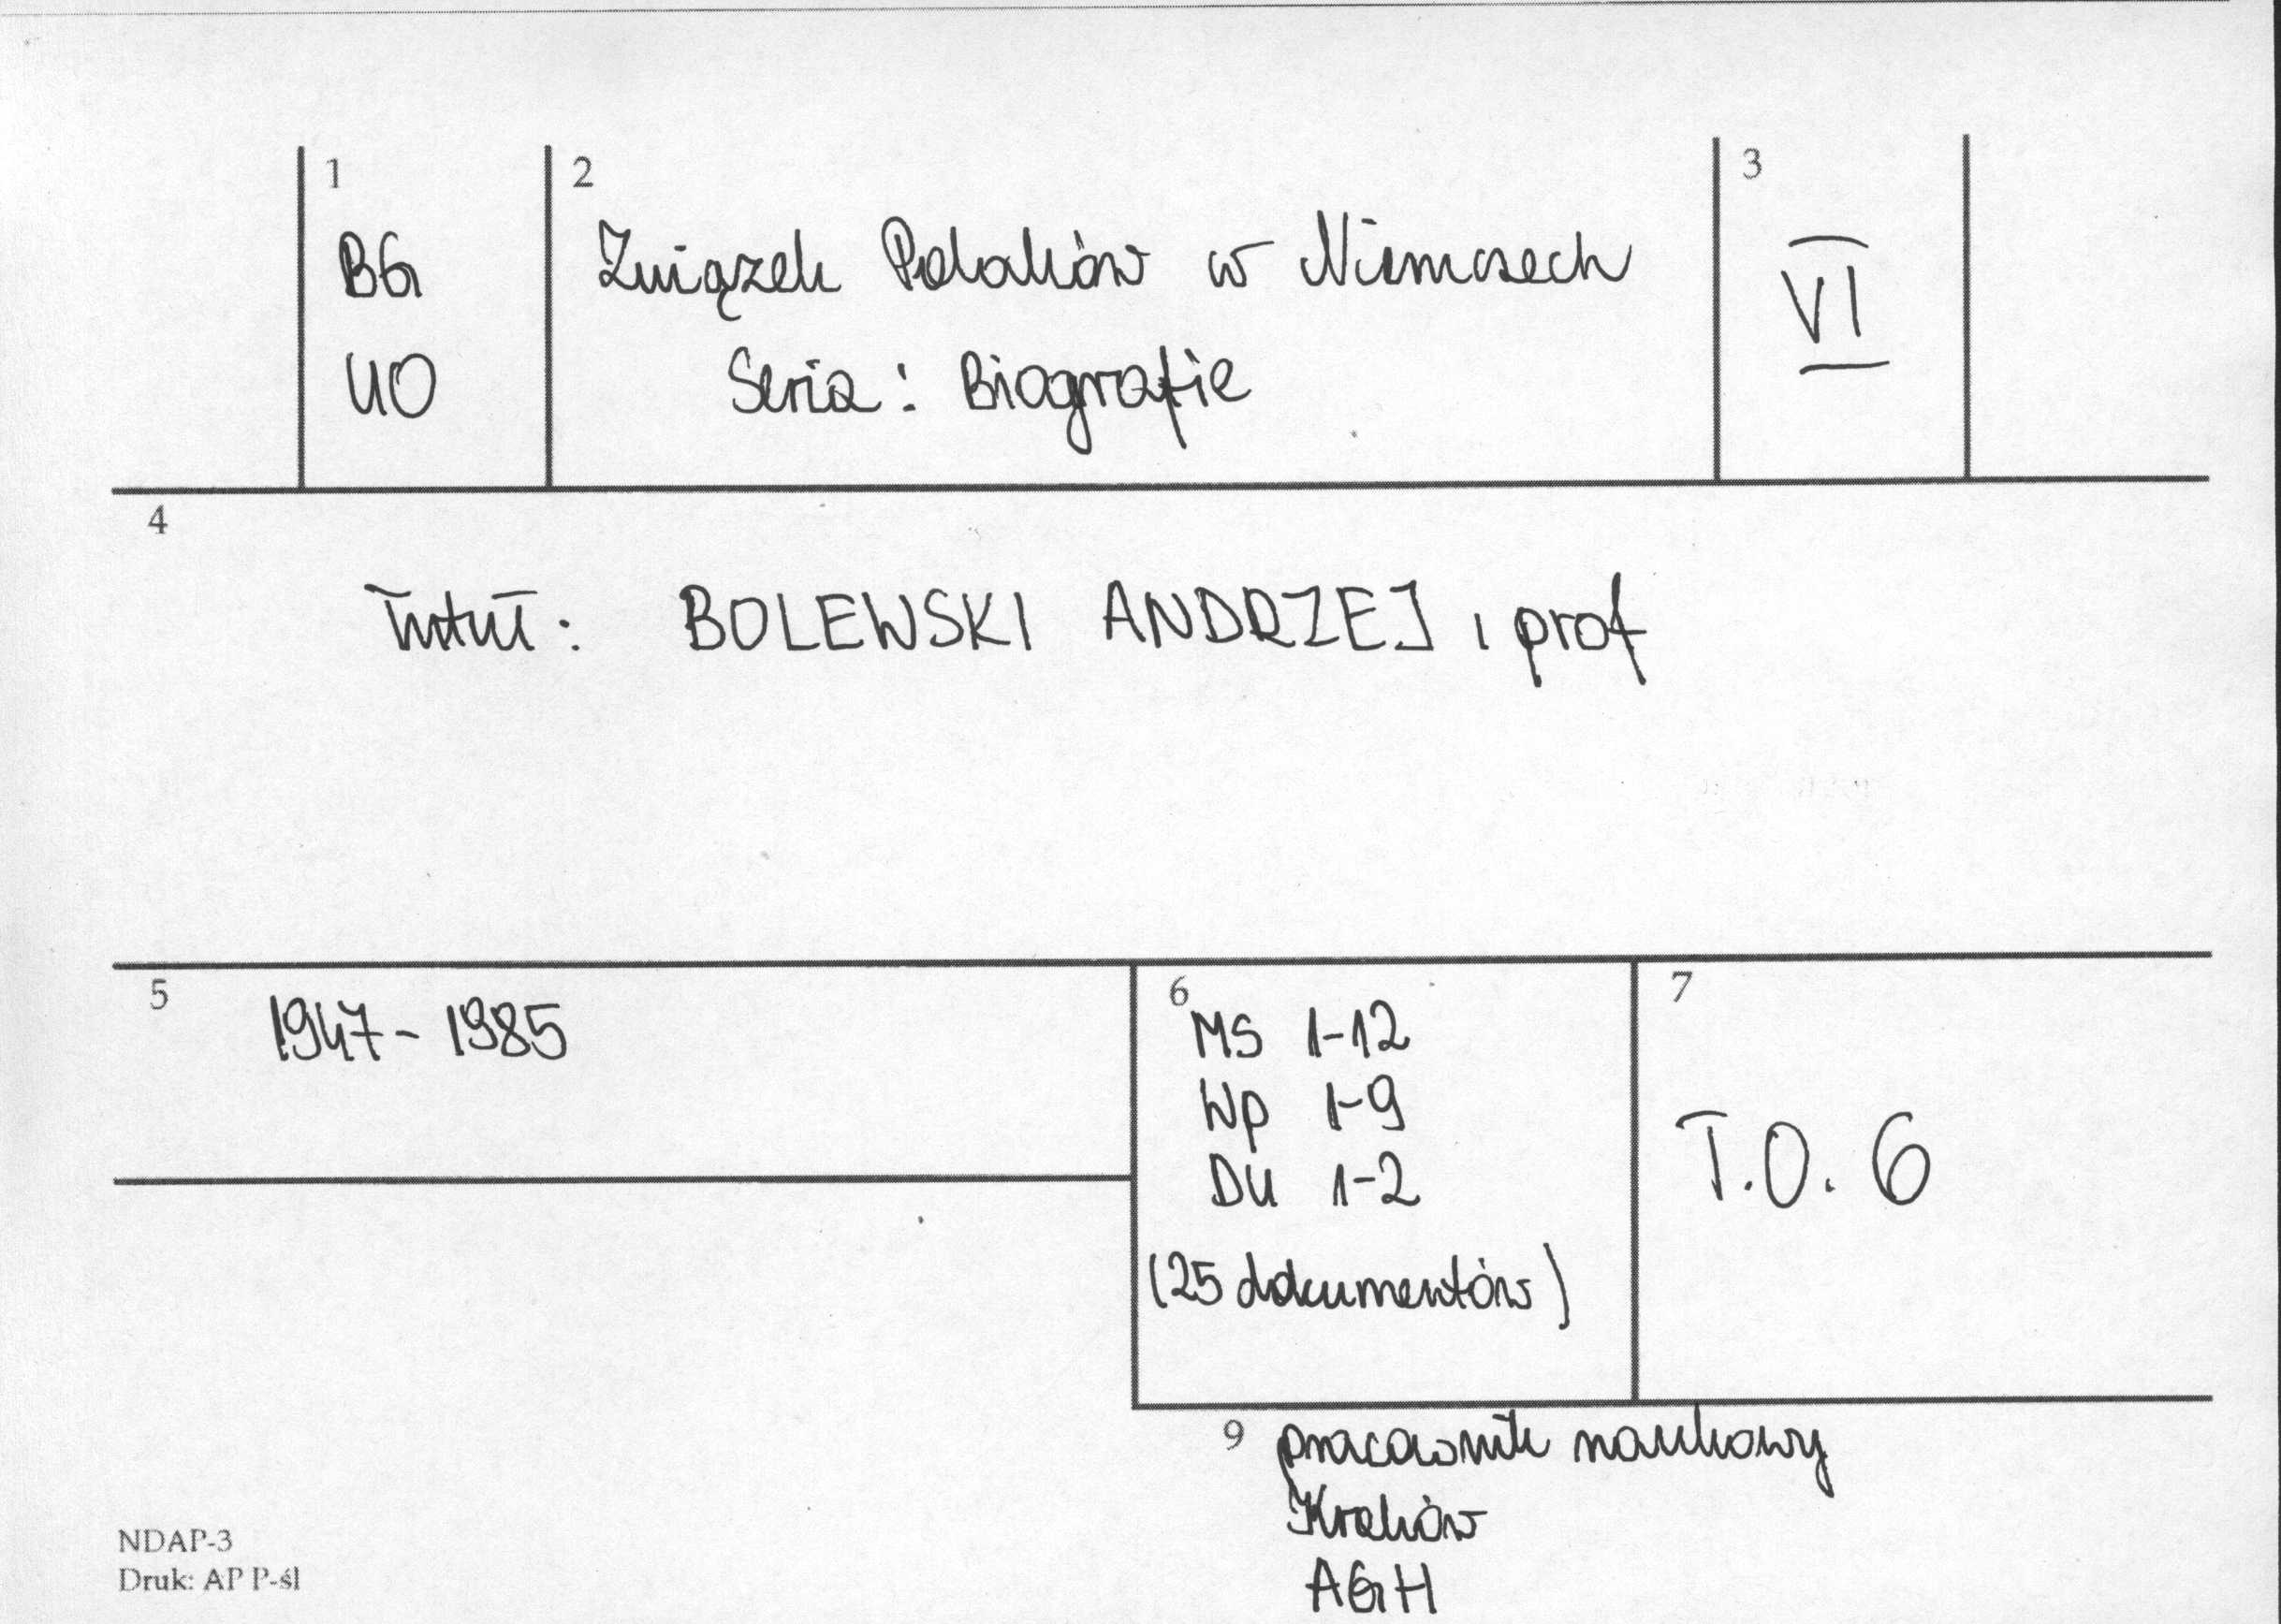 1
2
3
BG
Związek Polaków w Niemczech
VI
UO
Seria: Biografie
4
Tytuł: BOLEWSKI ANDRZEJ, prof
5
1947-1985
6
MS 1-12
Wp 1-9
DU 1-2
(25 dokumentów)
7
T.O. 6
9 pracownik naukowy
Kraków
AGH
NDAP-3
Druk: AP P-śl